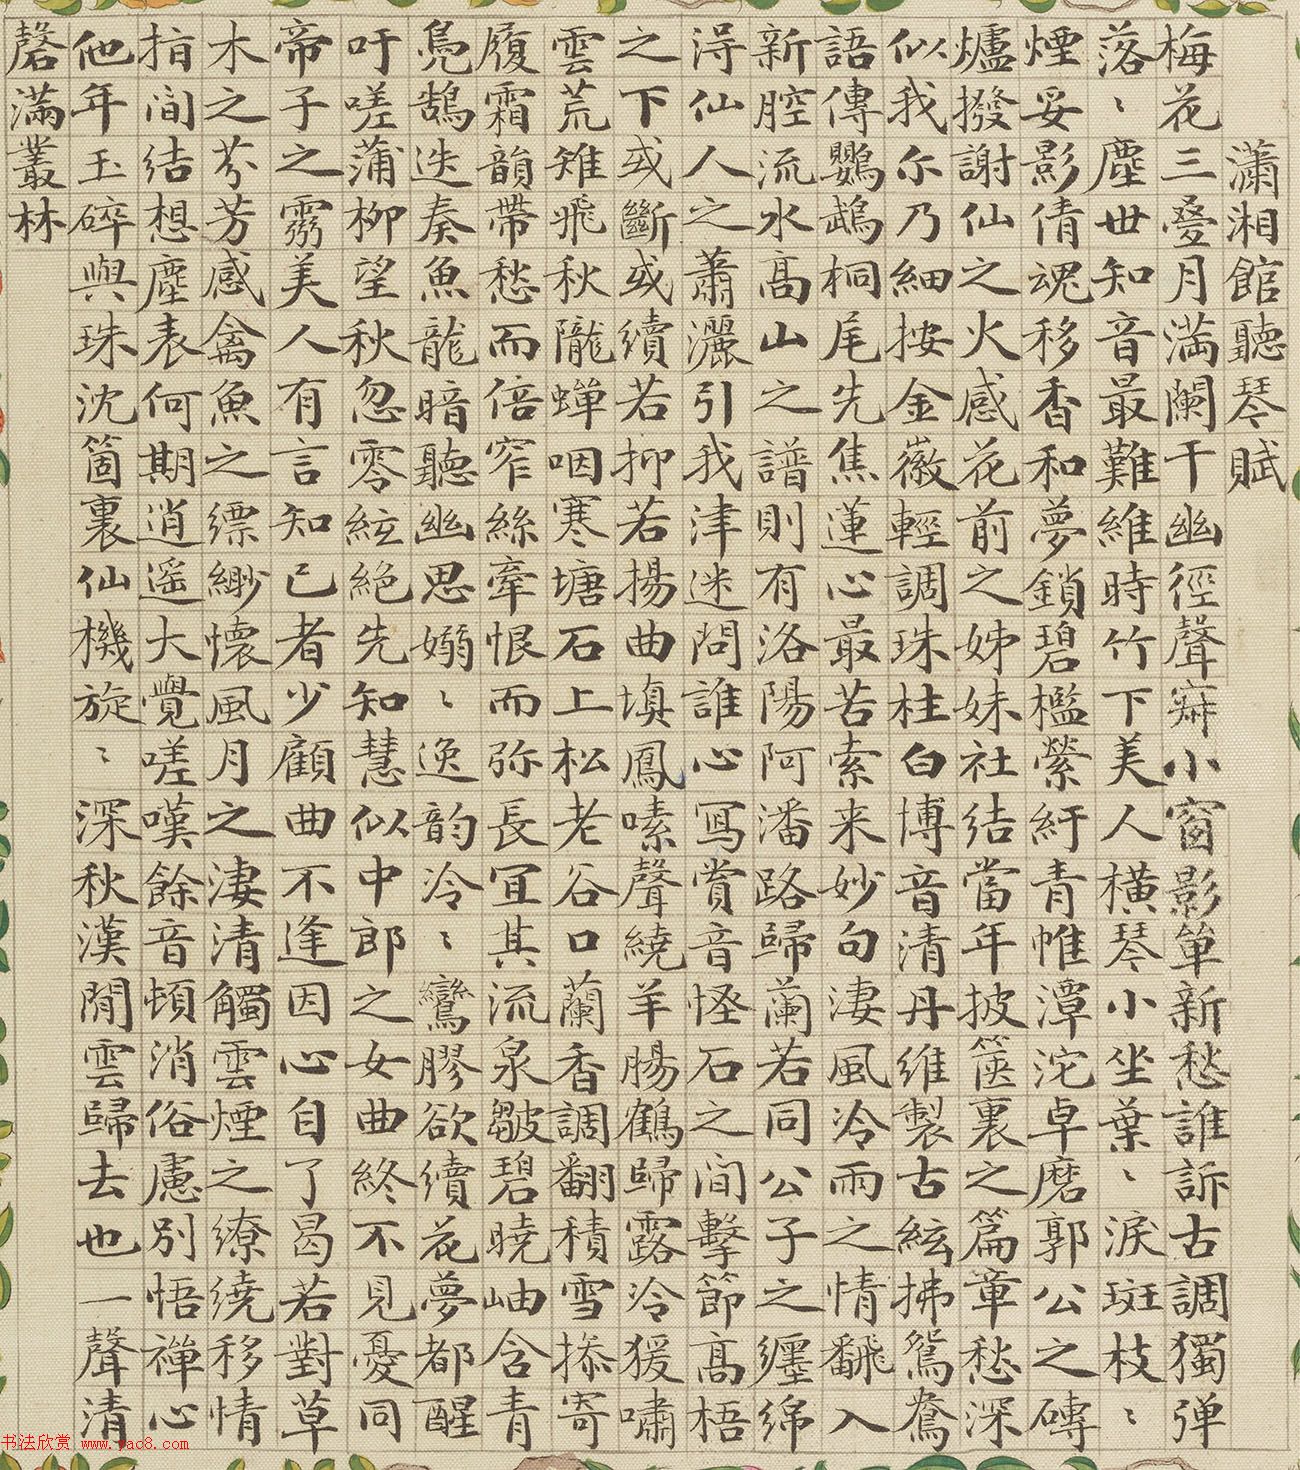 瀟湘館聽琴賦
梅花三疊月滿闌干幽徑聲寂小窗影單新愁誰訴古調獨彈
落〻塵世知音最難維時竹下美人橫琴小坐葉〻淚斑枝〻
煙妥影倩魂移香和夢鎖碧檻縈紆青帷潭沱卓磨郭公之磚
爐撥謝仙之火感花前之姊妹社結當年披篋裏之篇章愁深
似我尒乃細按金徽輕調珠柱白博音清丹維製古絃拂鴛鴦
語傳鸚鵡桐尾先焦蓮心最苦索来妙句淒風冷雨之情翻入
新腔流水高山之譜則有洛陽阿潘路歸蘭若同公子之纏綿
淂仙人之蕭灑引我津迷問誰心寫賞音怪石之間擊節高梧
之下或斷或續若抑若揚曲填鳳嗉聲繞羊腸鶴歸露冷猨嘯
雲荒雉飛秋隴蟬咽寒塘石上松老谷口蘭香調翻積雪㨾寄
履霜韻帶愁而倍窄絲牽恨而弥長冝其流泉皺碧曉岫含青
鳧鵠迭奏魚龍暗聽幽思嫋〻逸韵泠〻鸞膠欲續花夢都醒
吁嗟蒲柳望秋忽零絃絕先知慧似中郎之女曲終不見憂同
帝子之霛美人有言知己者少顧曲不逢因心自了曷若對草
木之芬芳感禽魚之縹緲懷風月之淒清觸雲煙之繚繞移情
指間結想塵表何期逍遙大覺嗟嘆餘音頓消俗慮別悟禪心
他年玉碎與珠沈箇裏仙機旋〻深秋漢閒雲歸去也一聲清
磬滿叢林
书法欣赏 www.yac8.com